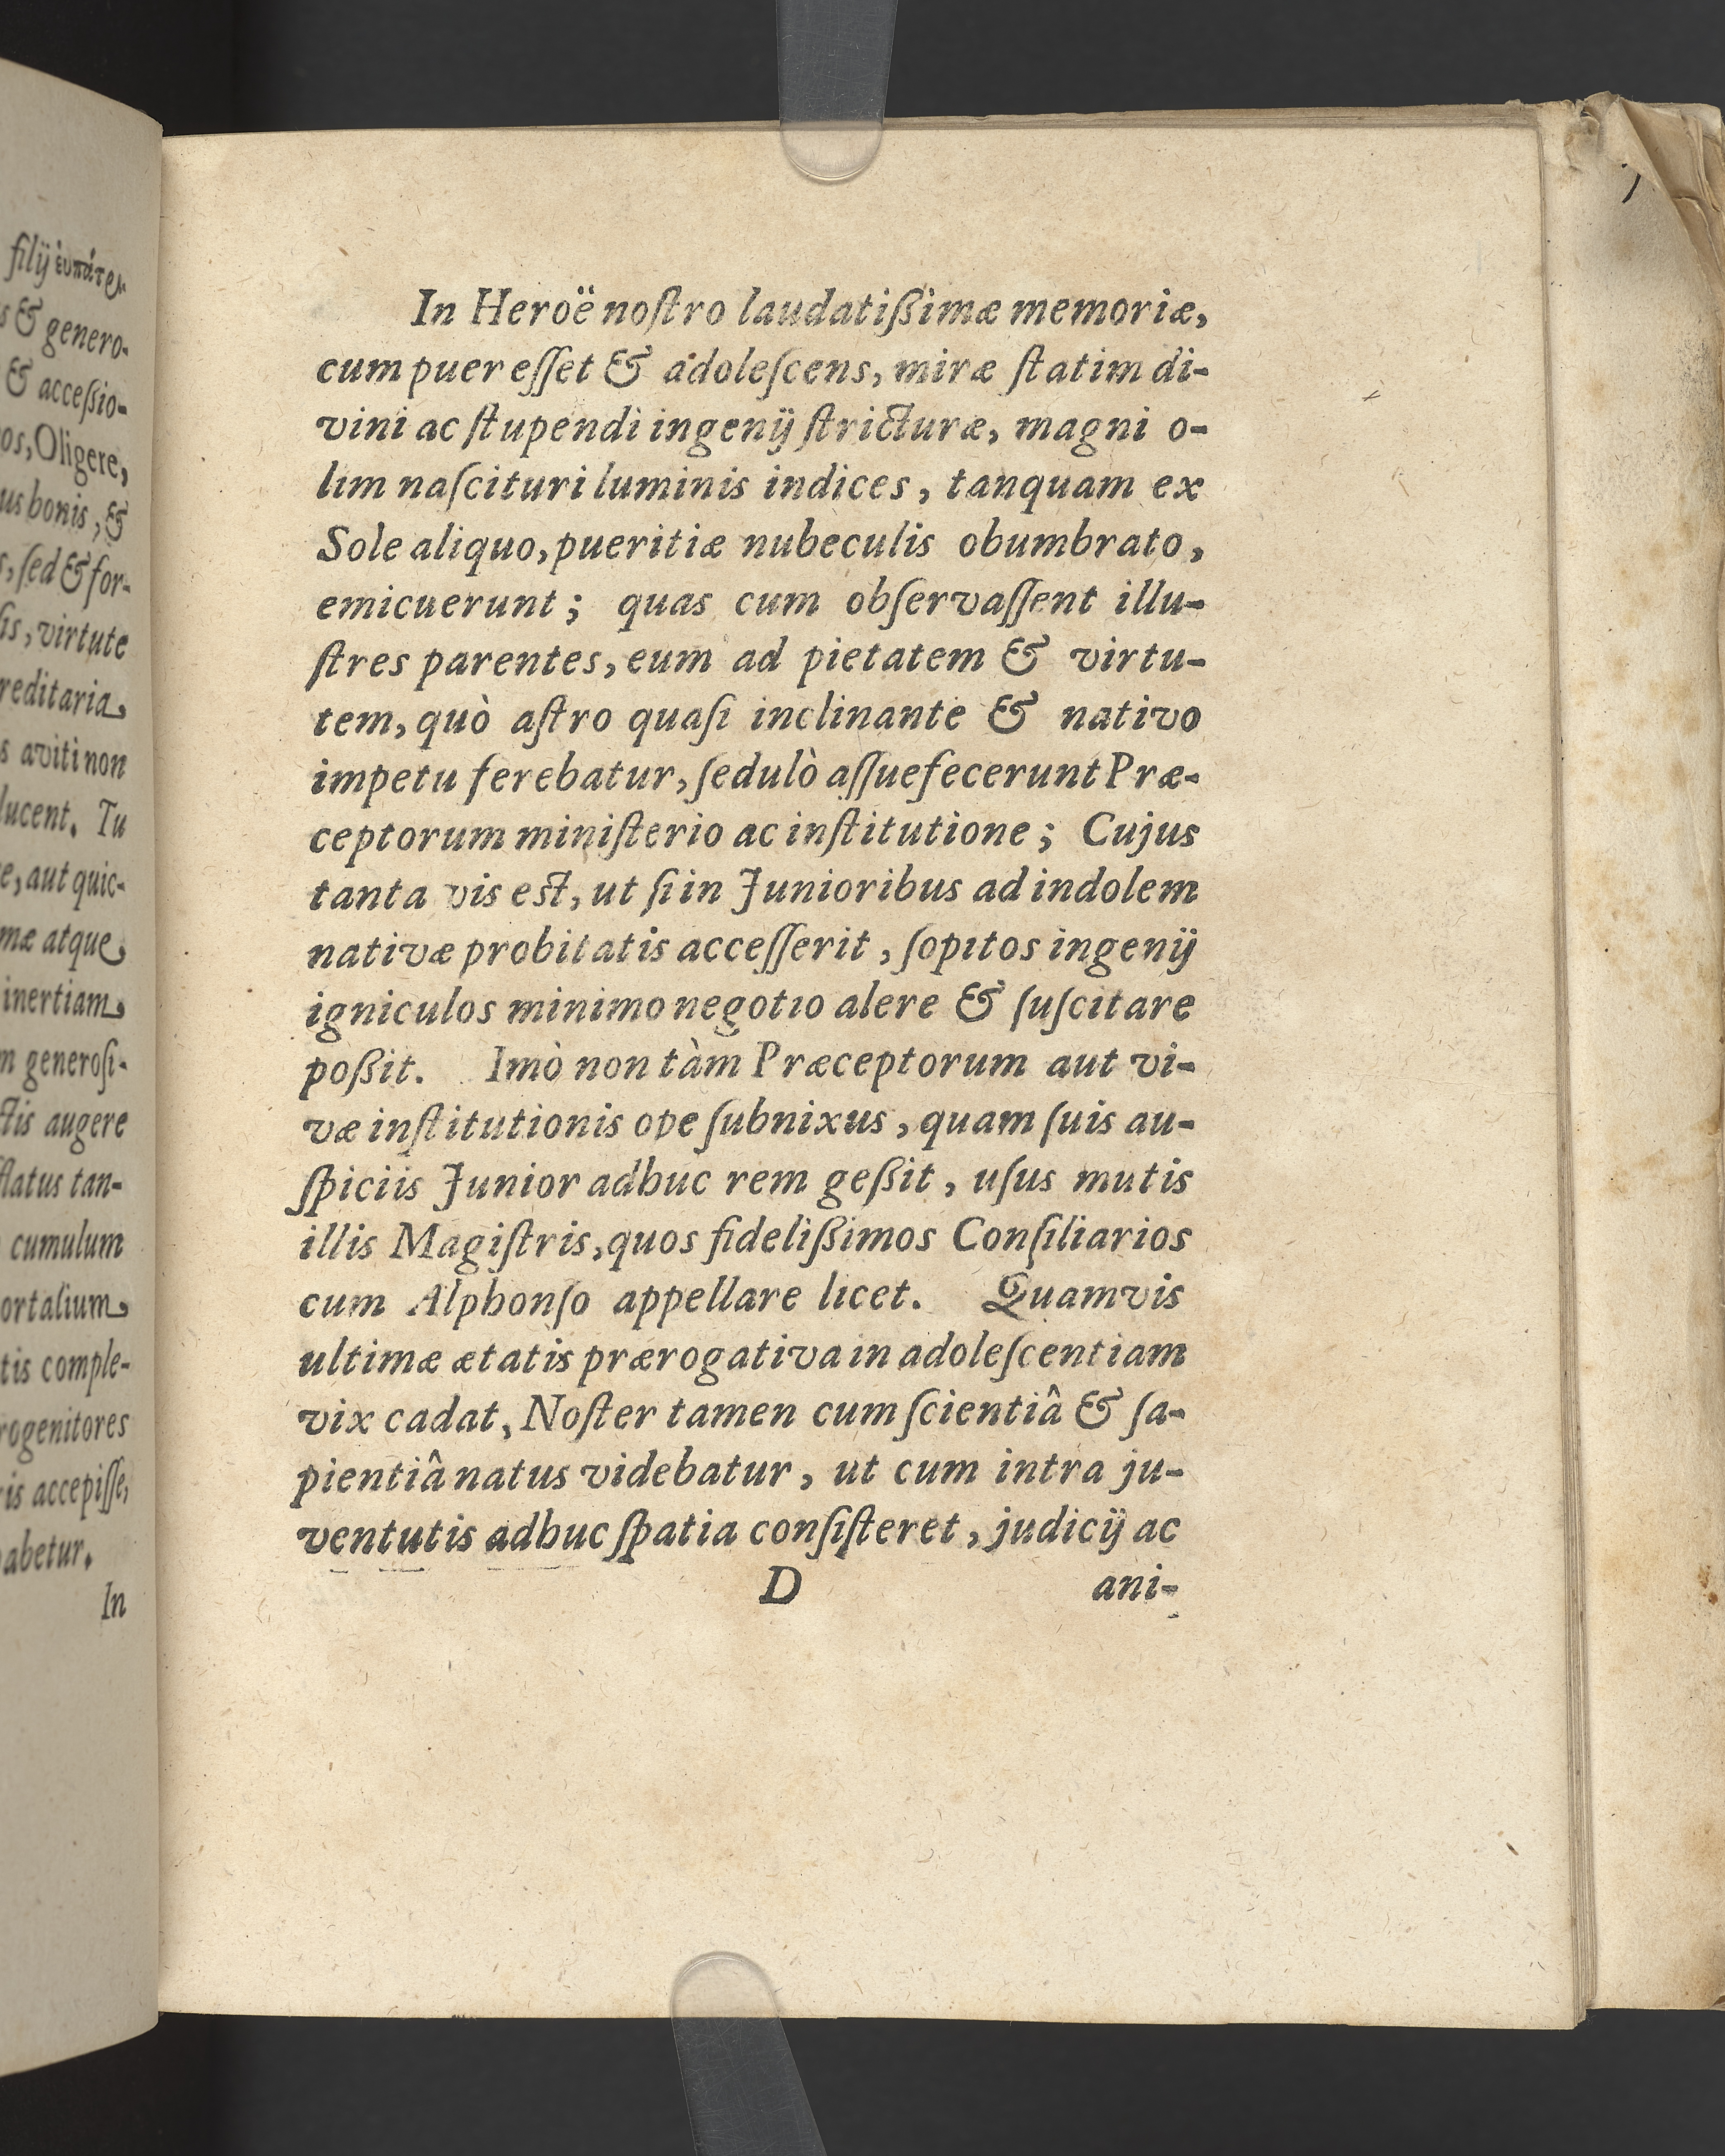 filij
s & genero-
& acceſſio-
os, Oligere,
us bonis, &
s, ſed & for-
ſis, virtute
reditaria
s aviti non
lucent. Tu
e, aut quic-
mæ atque
inertiam
m generoſi-
ctis augere
flatus tan-
cumulum
ortalium
tis comple-
rogenitores
is accepiſſe,
abetur.
In
In Heroë noſtro laudatiſſimæ memoriæ,
cum puer eſſet & adoleſcens, miræ ſtatim di-
vini ac ſtupendi ingenij ſtricturæ, magni o-
lim naſcituri luminis indices, tanquam ex
Sole aliquo, pueritiæ nubeculis obumbrato,
emicuerunt; quas cum obſervaſſent illu-
ſtres parentes, eum ad pietatem & virtu-
tem, quò aſtro quaſi inclinante & nativo
impetu ferebatur, ſedulò aſſuefecerunt Præ-
ceptorum miniſterio ac inſtitutione; Cujus
tanta vis eſt, ut ſi in Junioribus ad indolem
nativæ probitatis acceſſerit, ſopitos ingenij
igniculos minimo negotio alere & ſuſcitare
poſſit. Imò non tàm Præceptorum aut vi-
væ inſtitutionis ope ſubnixus, quam ſuis au-
ſpiciis Junior adhuc rem geſſit, uſus mutis
illis Magiſtris, quos fideliſſimos Conſiliarios
cum Alphonſo appellare licet. Quamvis
ultimæ ætatis prærogativa in adoleſcentiam
vix cadat, Noſter tamen cum ſcientiâ & ſa-
pientiâ natus videbatur, ut cum intra ju-
ventutis adhuc ſpatia conſiſteret, judicij ac
D ani-